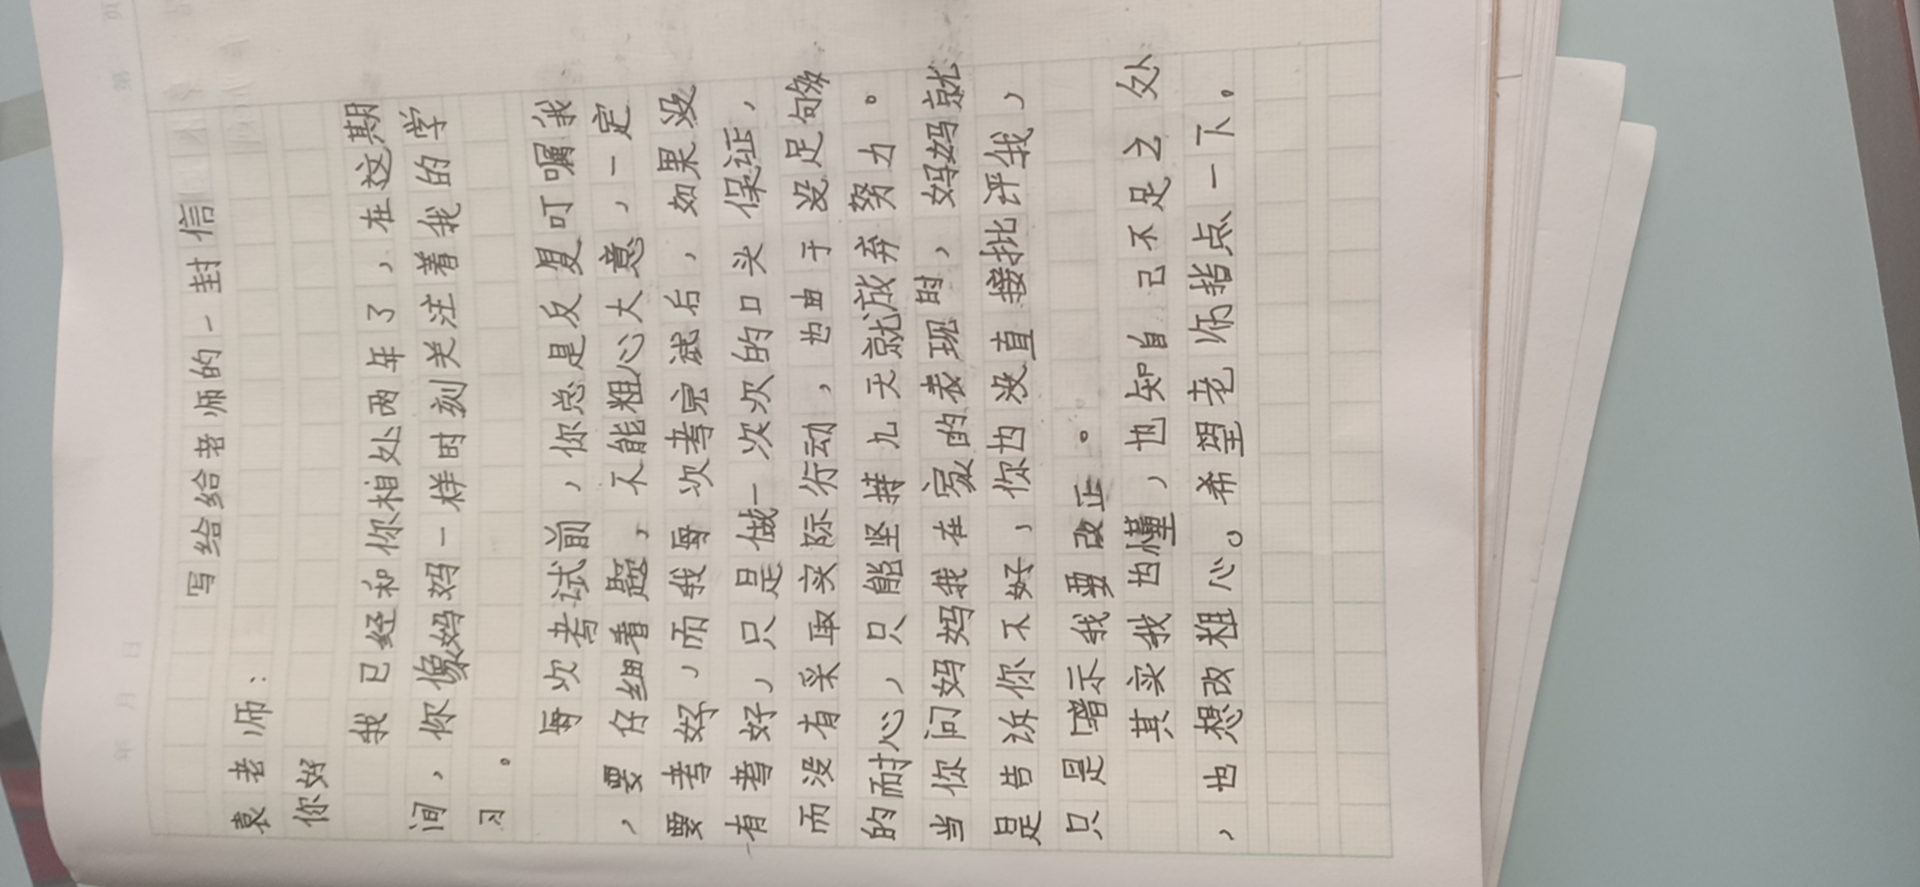 写给给老师的一封信
袁老师：
你好
我已经和你相处两年了，在这期
间，你像妈妈一样时刻关注着我的学
习。
每次考试前，你总是反复叮嘱我
，要仔细看题，不能粗心大意，一定
要考好，而我每次考完试后，如果没
有考好，只是做一次次的口头保证，
而没有采取实际行动，也由于没足够
的耐心，只能坚持九天就放弃努力。
当你问妈妈我在家的表现时，妈妈就
是告诉你不好，你也没直接批评我，
只是暗示我要改正。
其实我也懂，也知自己不足之处
，也想改粗心。希望老你指点一下。